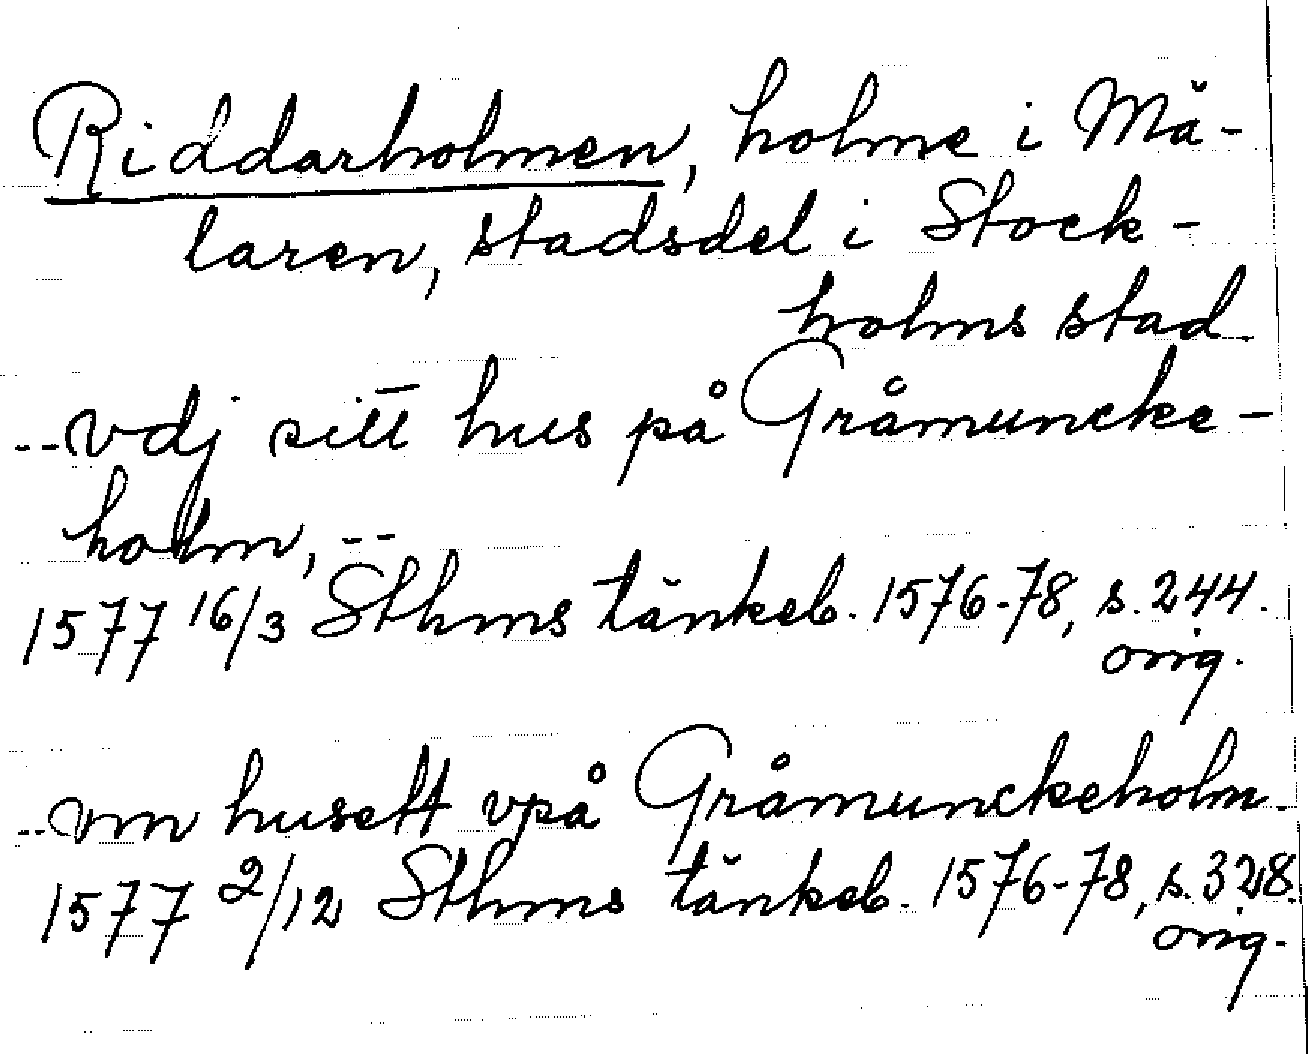 Riddarholmen, holme i Mä-
laren, stadsdel i Stock-
holms stad
--vdj sitt hus på Gråmuncke-
holm, --
1577 16/3 Sthms tänkeb. 1576-78, s. 244.
orig.
--vm husett vpå Gråmunckeholm
1577 2/12 Sthms tänkeb. 1576-78, s. 328.
orig.